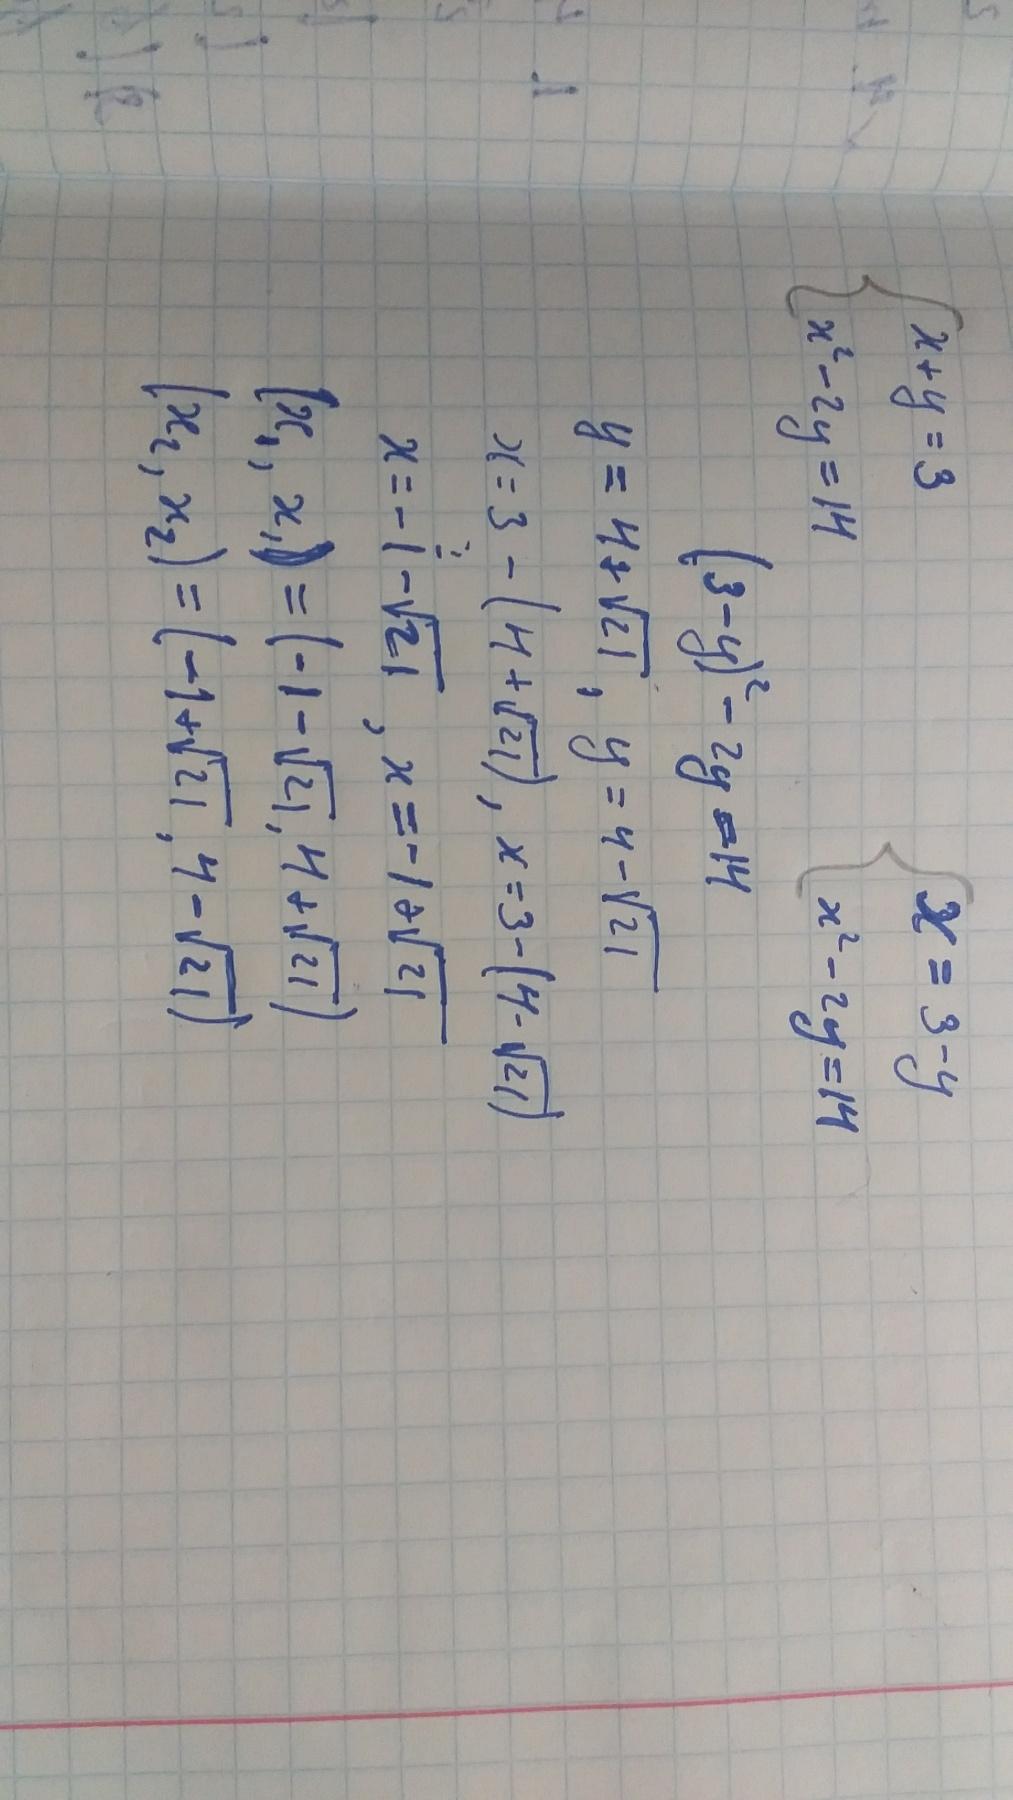 x+y=3 x=3-y
x²-2y=14 x²-2y=14
(3-y)²-2y=14
y=4+√21, y=4-√21
x=3-(4+√21), x=3-(4-√21)
x=-1-√21, x=-1+√21
(x₁, x₁)=(-1-√21, 4+√21)
(x₂, x₂)=(-1+√21, 4-√21)